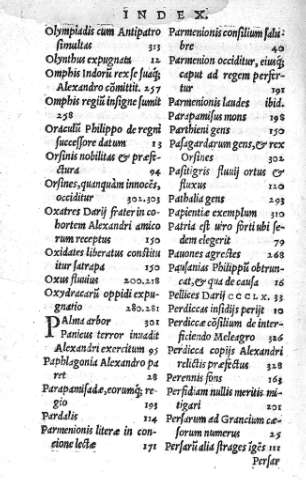 INDEX.
Olympiadis cum Antipatro
simultas 313
Olynthus expugnata 12
Omphis Indorū rex se suaq́;
Alexandro cōmittit. 257
Omphis regiū insigne sumit
258
Oraculū Philippo de regni
successore datum 13
Orsinis nobilitas & præfe-
ctura 94
Orsines, quanquàm innocēs,
occiditur 302.303
Oxatres Darij frater in co-
hortem Alexandri amico
rum receptus 150
Oxidates liberatus constitu
itur satrapa 150
Oxus fluuius 200.218
Oxydracarū oppidi expu-
gnatio 280.281
Palma arbor 301
Panicus terror inuadit
Alexandri exercitum 95
Paphlagonia Alexandro pa
ret 28
Parapamisadæ, eorumq́; re-
gio 193
Pardalis 114
Parmenionis literæ in con-
cione lectæ 171
Parmenionis consilium salu-
bre 40
Parmenion occiditur, eiusq́;
caput ad regem perfer-
tur 191
Parmenionis laudes ibid.
Parapamisus mons 198
Parthieni gens 150
Pasagardarum gens, & rex
Orsines 302
Pasitigris fluuij ortus &
fluxus 120
Pathalia gens 293
Papientiæ exemplum 310
Patria est uiro forti ubi se-
dem elegerit 79
Pauones agrestes 268
Pausanias Philippū obtrun-
cat, & qua de causa 16
Pellices Darij CCCLX. 33
Perdiccas insidijs perijt 10
Perdiccæ cōsilium de inter-
ficiendo Meleagro 326
Perdicca copijs Alexandri
relictis præfectus 328
Perennis fons 163
Perfidiam nullis meritis mi-
tigari 201
Persarum ad Granicum cæ-
sorum numerus 25
Persarū alia strages īgēs 111
Persar